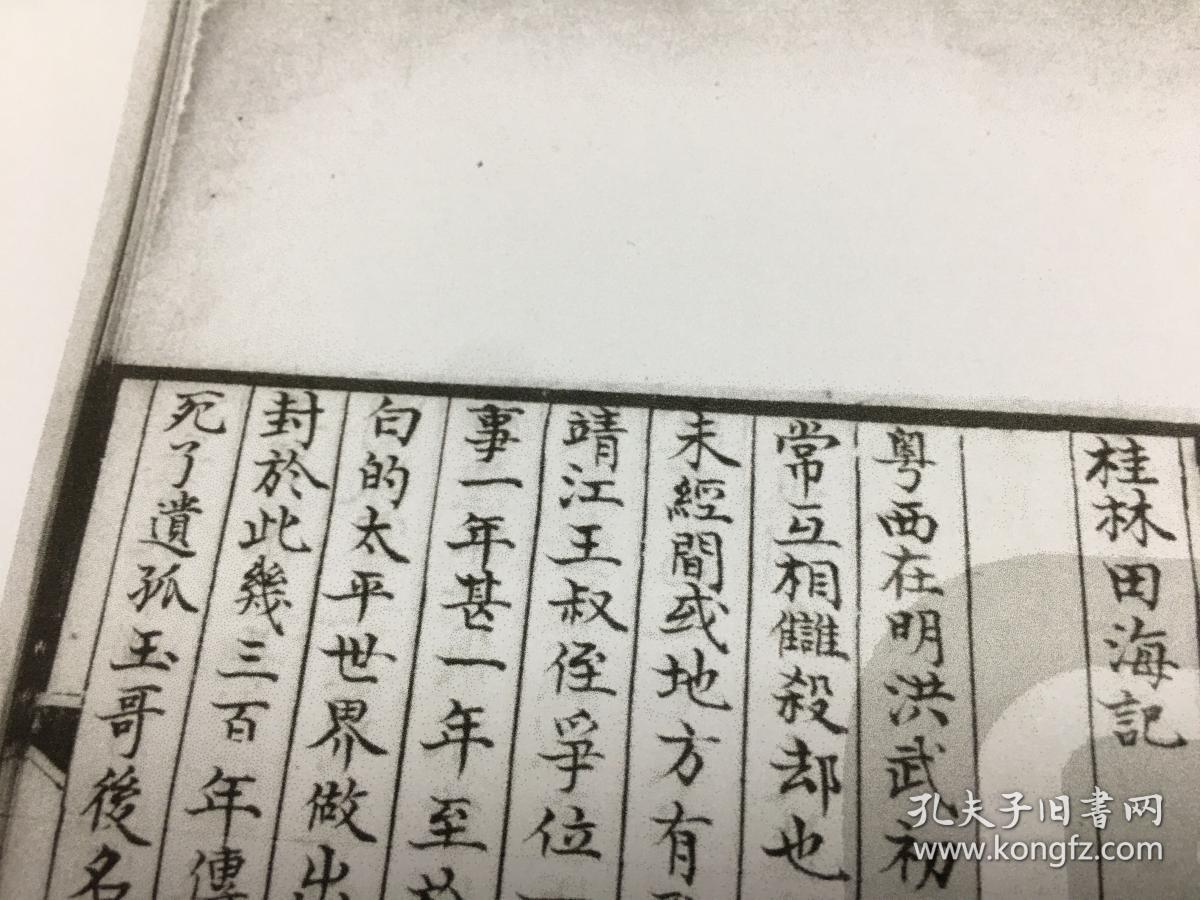 桂林田海記
粵西在明洪武初
常互相讎殺却也
未經間或地方有
靖江王叔侄爭位一
事一年甚一年至於
白的太平世界做出
封於此幾三百年傳
死了遺孤玉哥後名
孔夫子旧书网
www.kongfz.com